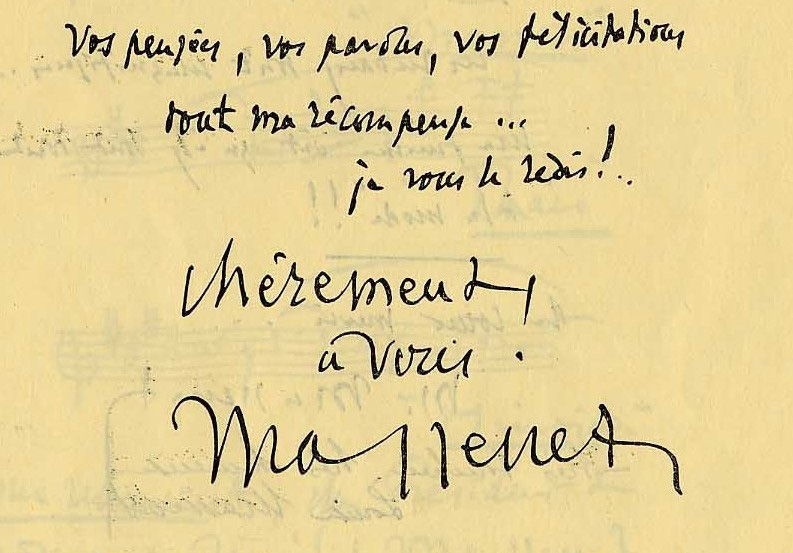 Vos pensées, vos paroles, vos félicitations
sont ma récompense ...
je vous le redis!..
chèrement,
à vous.
Massenet